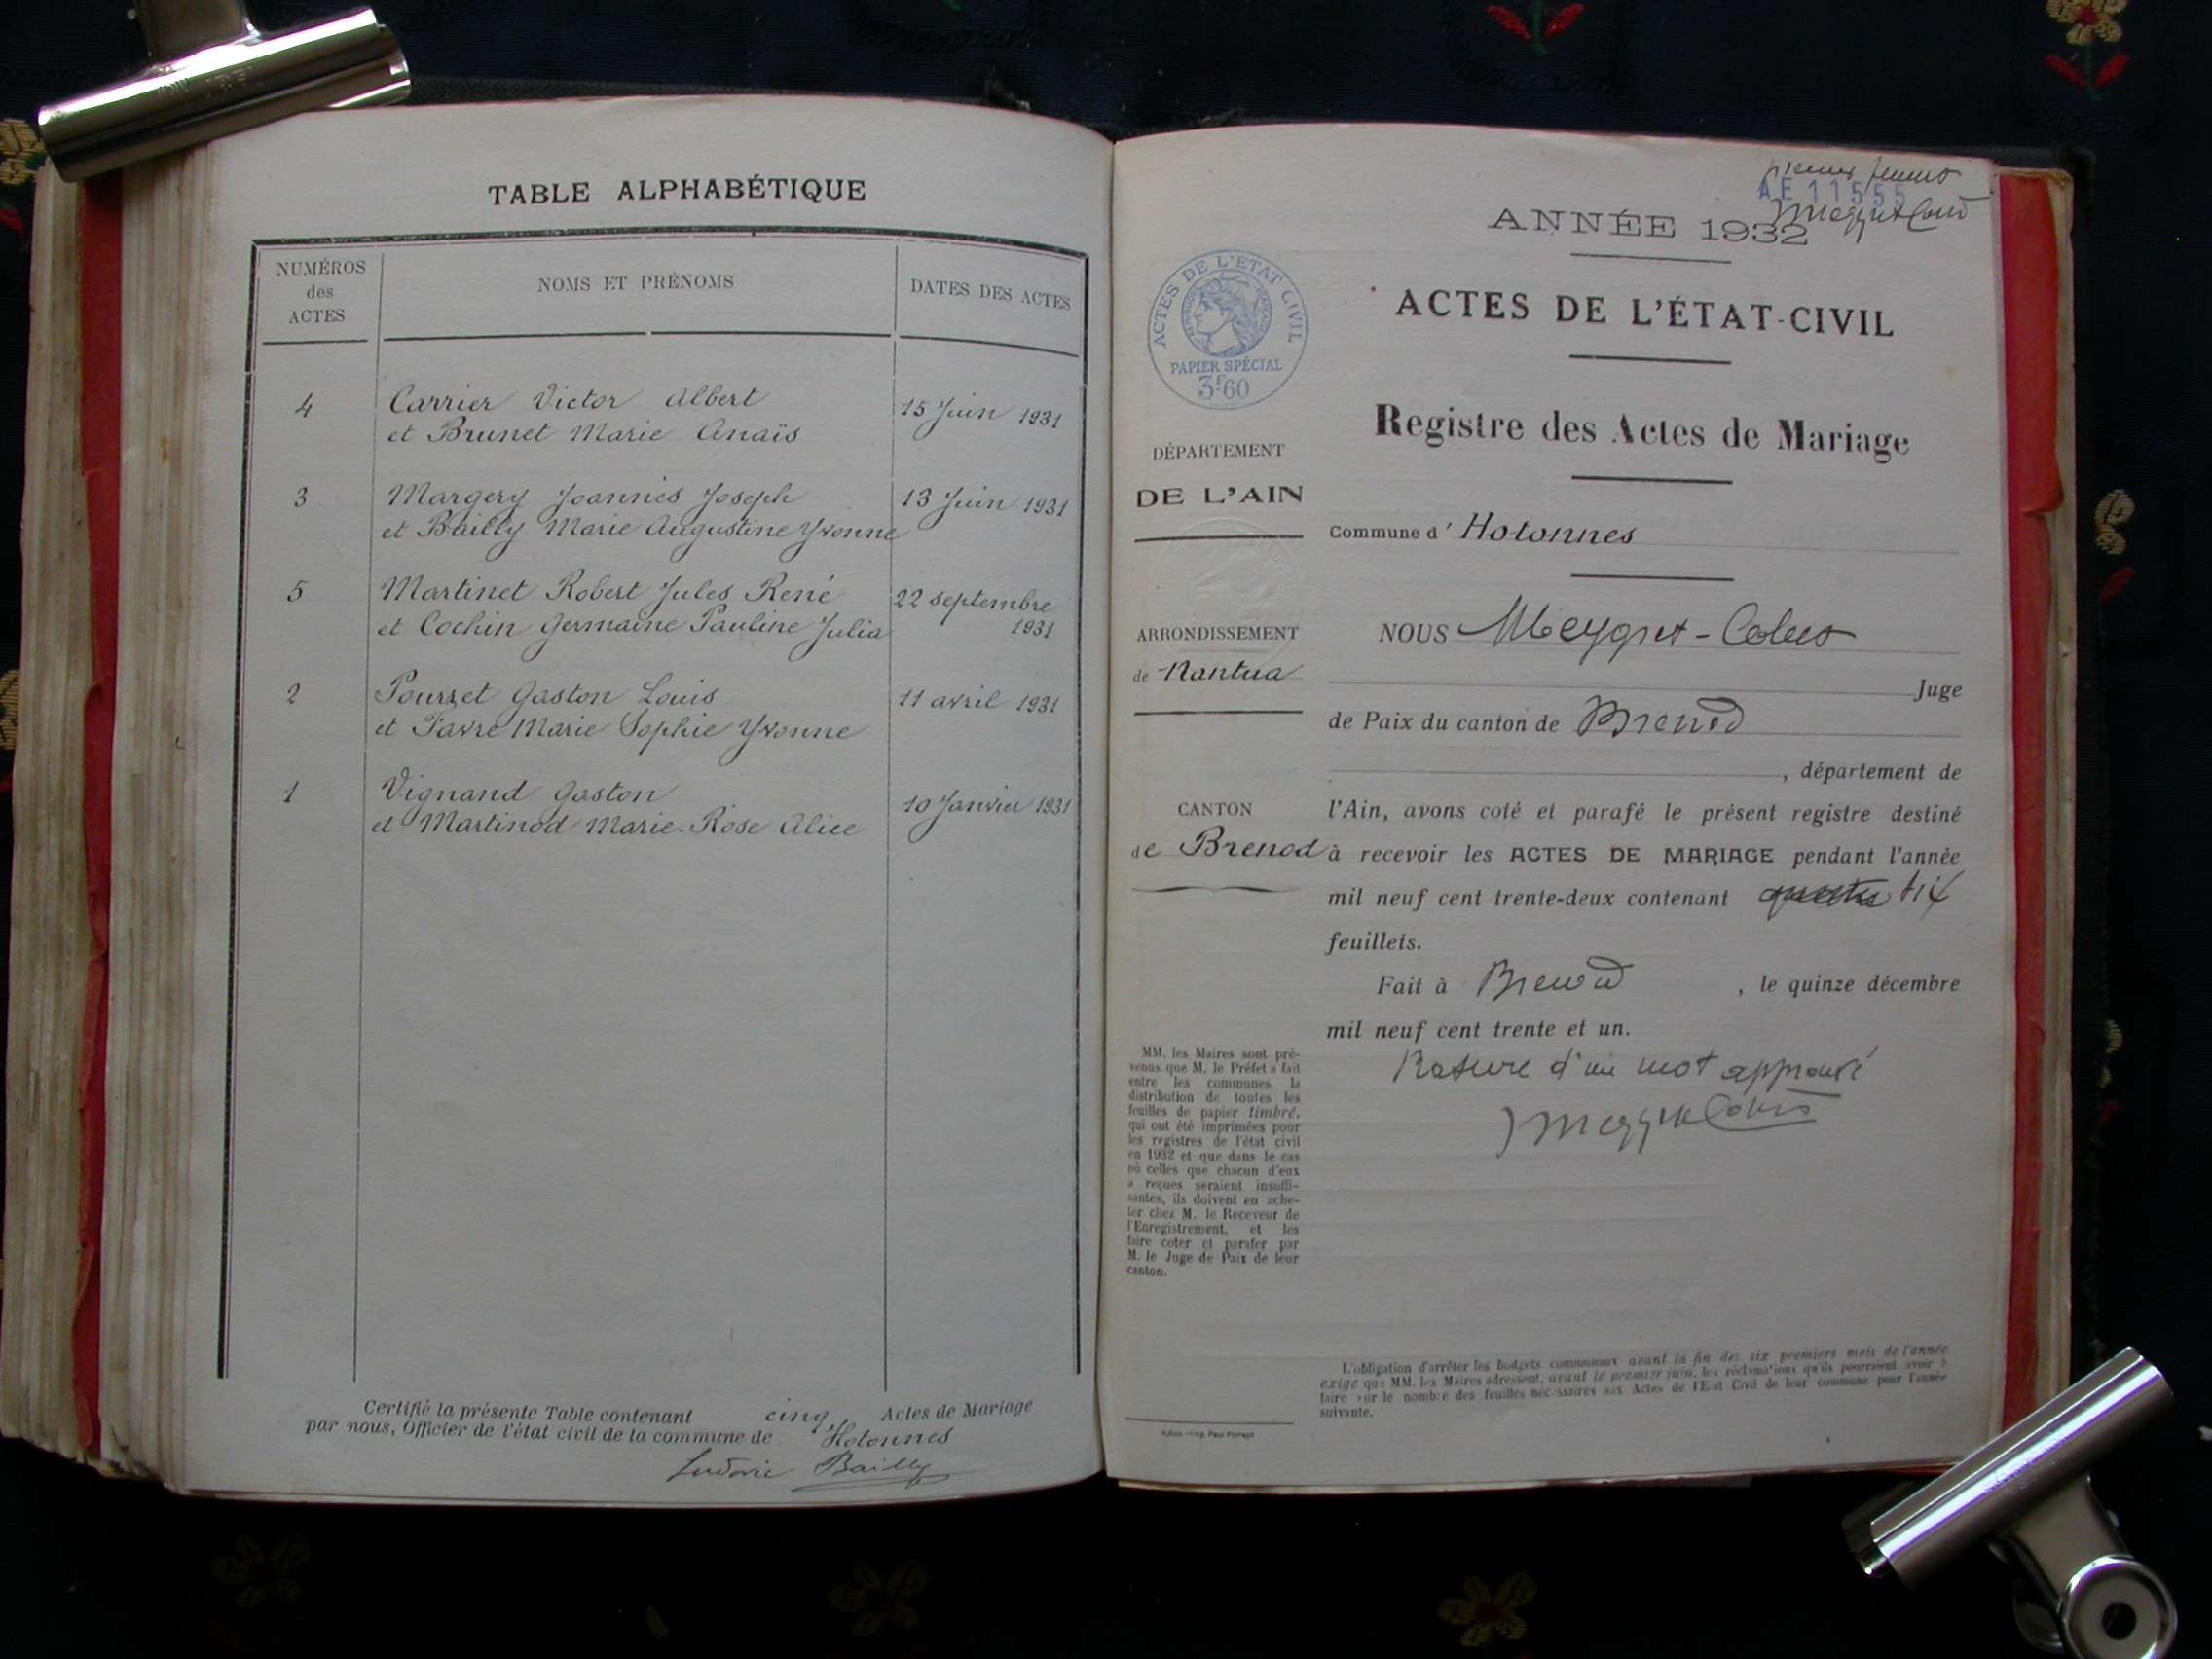 TABLE ALPHABÉTIQUE
NUMÉROS
des
ACTES
NOMS ET PRÉNOMS
DATES DES ACTES
4 Carrier Victor Albert 15 Juin 1931
et Brunet Marie Anaïs
3 Margery Joannès Joseph 13 Juin 1931
et Bailly Marie Augustine Yvonne
5 Martinet Robert Jules René 22 septembre
et Cochin Germaine Pauline Julia 1931
2 Pourzet Gaston Louis 11 avril 1931
et Favre Marie Sophie Yvonne
1 Vignand Gaston 10 Janvier 1931
et Martinod Marie-Rose Alice
Certifié la présente Table contenant cinq Actes de Mariage
par nous, Officier de l'état civil de la commune de Hotonnes
Ludovic Bailly
AE 11555
ANNÉE 1932
ACTES DE L'ÉTAT CIVIL
PAPIER SPÉCIAL
3F60
ACTES DE L'ÉTAT-CIVIL
Registre des Actes de Mariage
DÉPARTEMENT
DE L'AIN
Commune d' Hotonnes
ARRONDISSEMENT
de Nantua
CANTON
de Brenod
NOUS
Juge
de Paix du canton de Brenod
, département de
l'Ain, avons coté et parafé le présent registre destiné
à recevoir les ACTES DE MARIAGE pendant l'année
mil neuf cent trente-deux contenant six
feuillets.
Fait à Brenod , le quinze décembre
mil neuf cent trente et un.
Rature d'un mot approuvé
MM. les Maires sont pré-
venus que M. le Préfet a fait
entre les communes la
distribution de toutes les
feuilles de papier timbré,
qui ont été imprimées pour
les registres de l'état civil
en 1932 et que dans le cas
où celles que chacun d'eux
a reçues seraient insuffi-
santes, ils doivent en ache-
ter chez M. le Receveur de
l'Enregistrement, et les
faire coter et parafer par
M. le Juge de Paix de leur
canton.
L'obligation d'arrêter les budgets communaux avant la fin des six premiers mois de l'année
exige que MM. les Maires adressent, avant le premier juin, les réclamations qu'ils pourraient avoir à
faire sur le nombre des feuilles nécessaires aux Actes de l'État Civil de leur commune pour l'année
suivante.